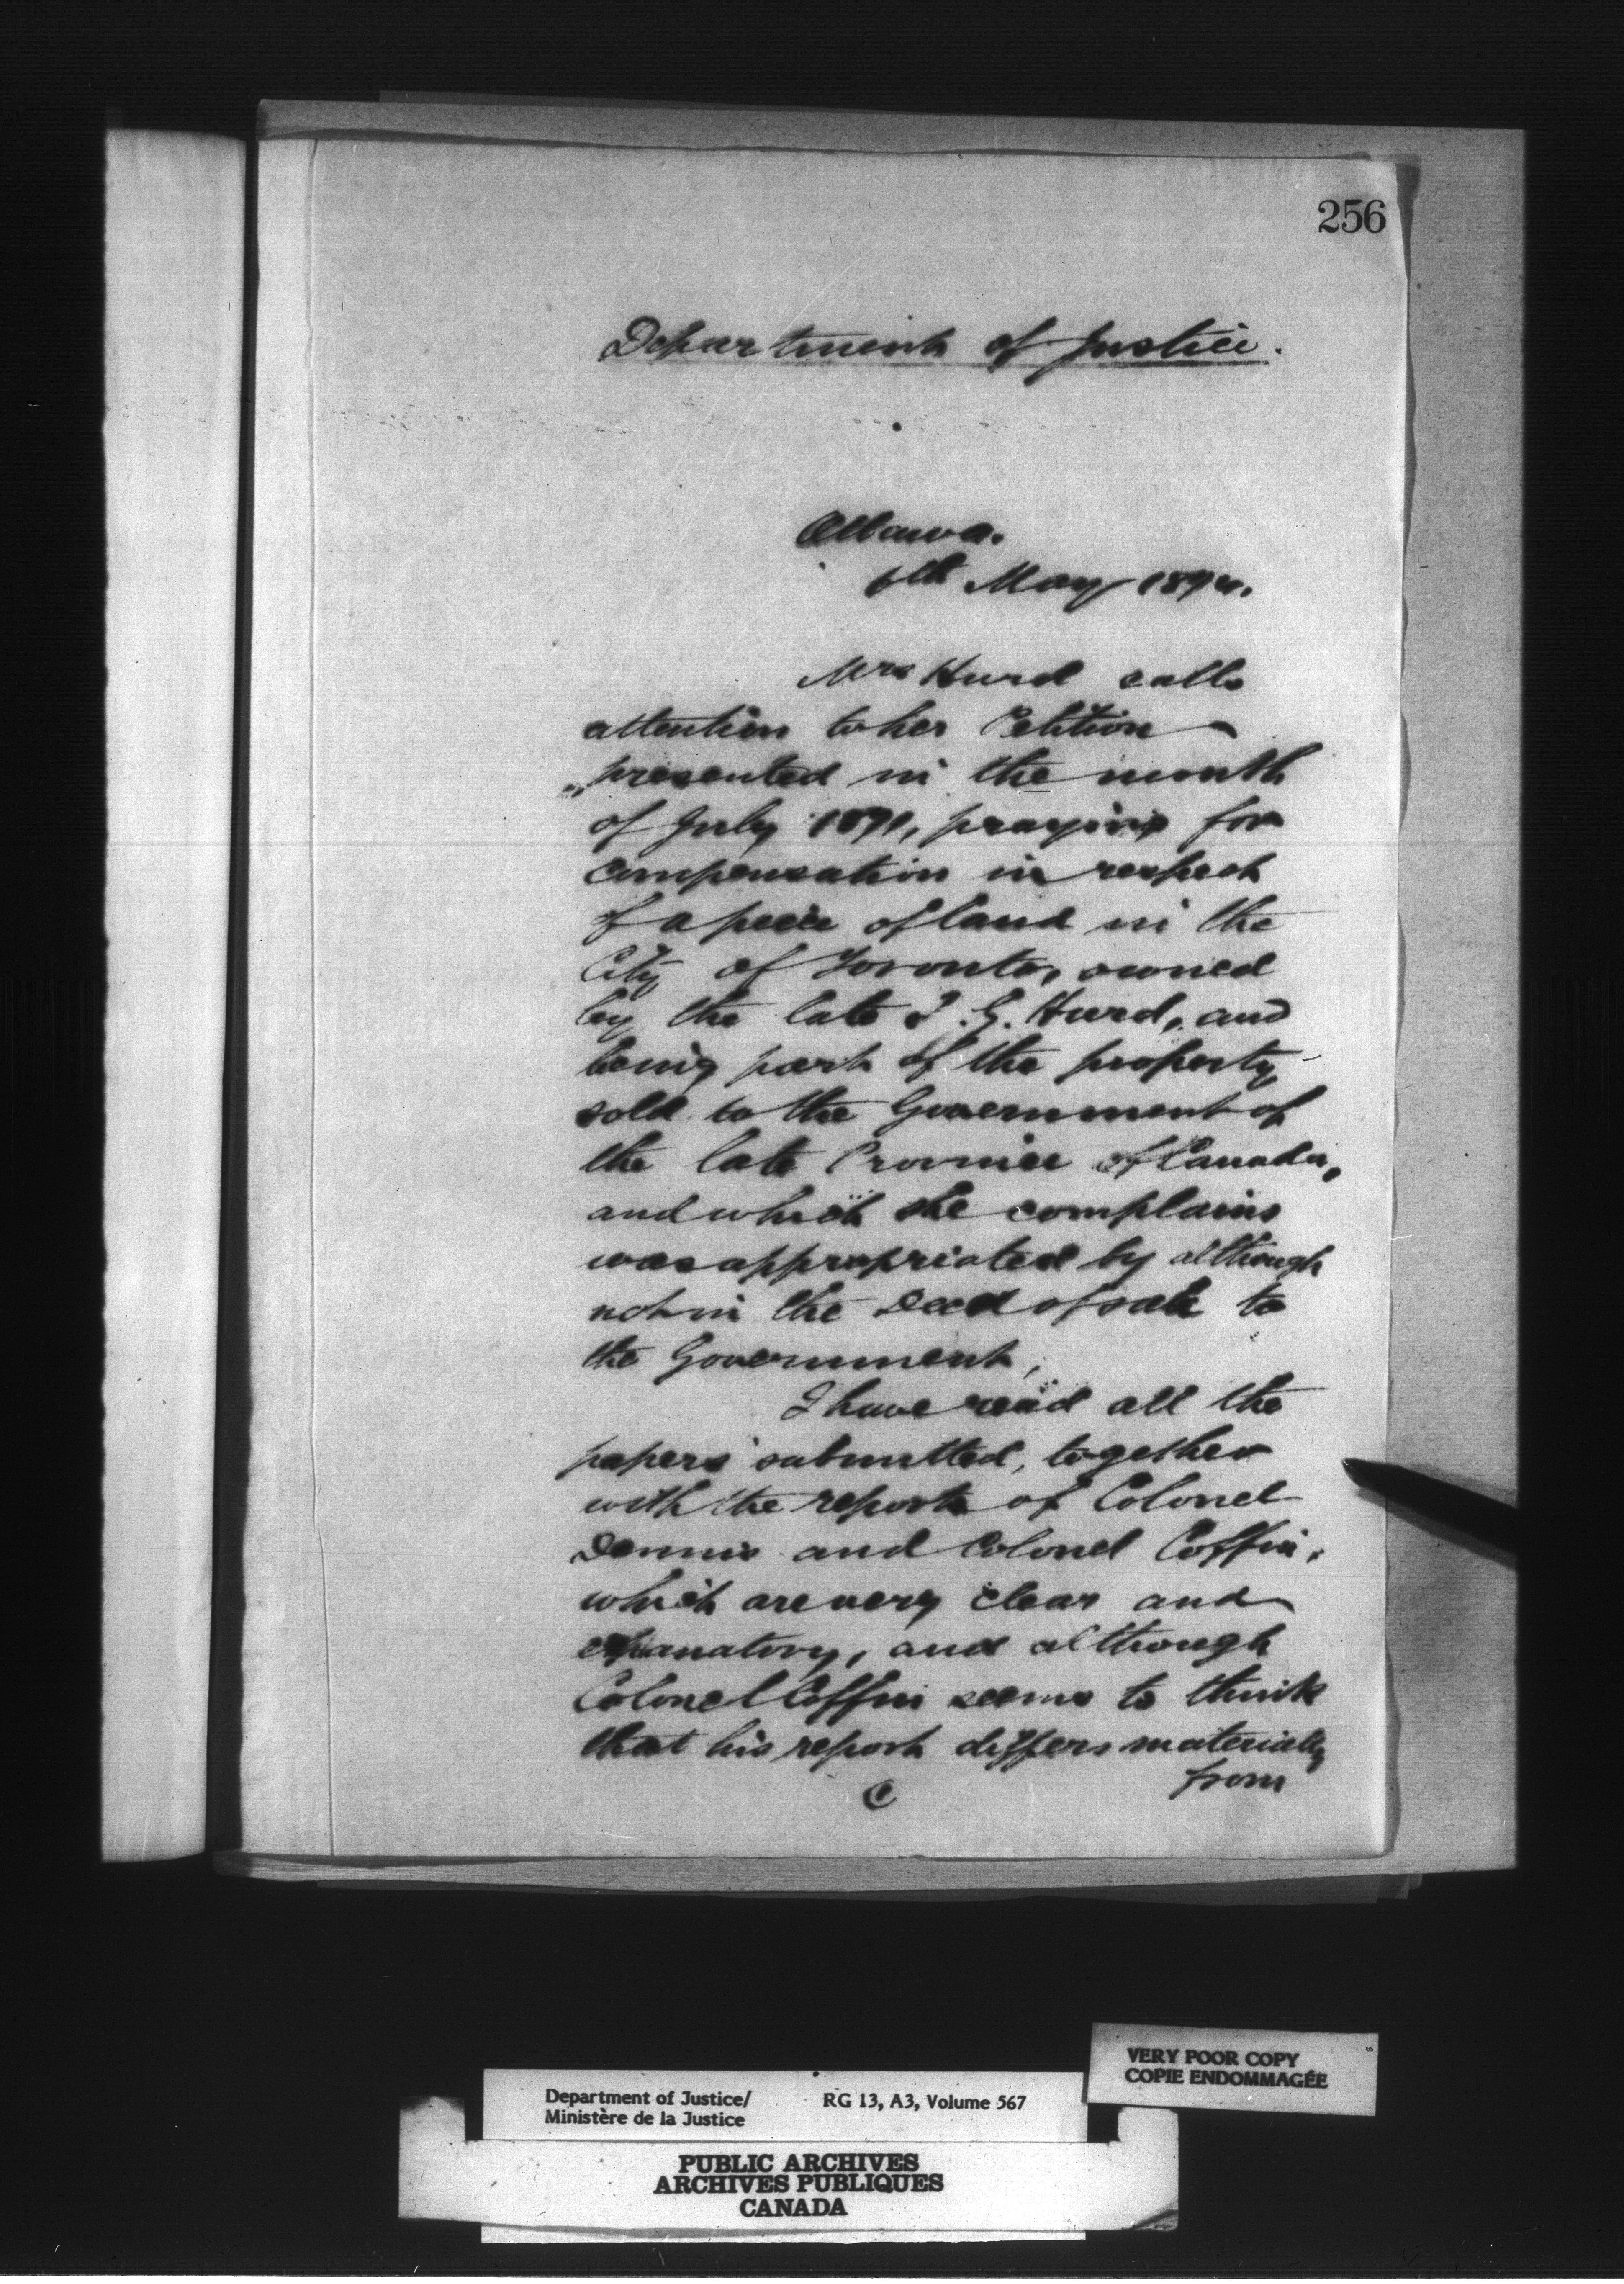 256
Department of Justice.
Ottawa.
6th May 1874.
Mrs Hurd calls
attention to her Petition
presented in the month
of July 1871, praying for
compensation in respect
of a piece of land in the
City of Toronto, owned
by the late T. G. Hurd, and
being part of the property
sold to the Government of
the late Province of Canada,
and which she complains
was appropriated by although
not in the Deed of sale to
the Government,
I have read all the
papers submitted, together
with the reports of Colonel
Dennis and Colonel Coffin,
which are very clear and
explanatory, and although
Colonel Coffin seems to think
that his report differs materially
from
C
VERY POOR COPY
COPIE ENDOMMAGÉE
Department of Justice/ RG 13, A3, Volume 567
Ministère de la Justice
PUBLIC ARCHIVES
ARCHIVES PUBLIQUES
CANADA